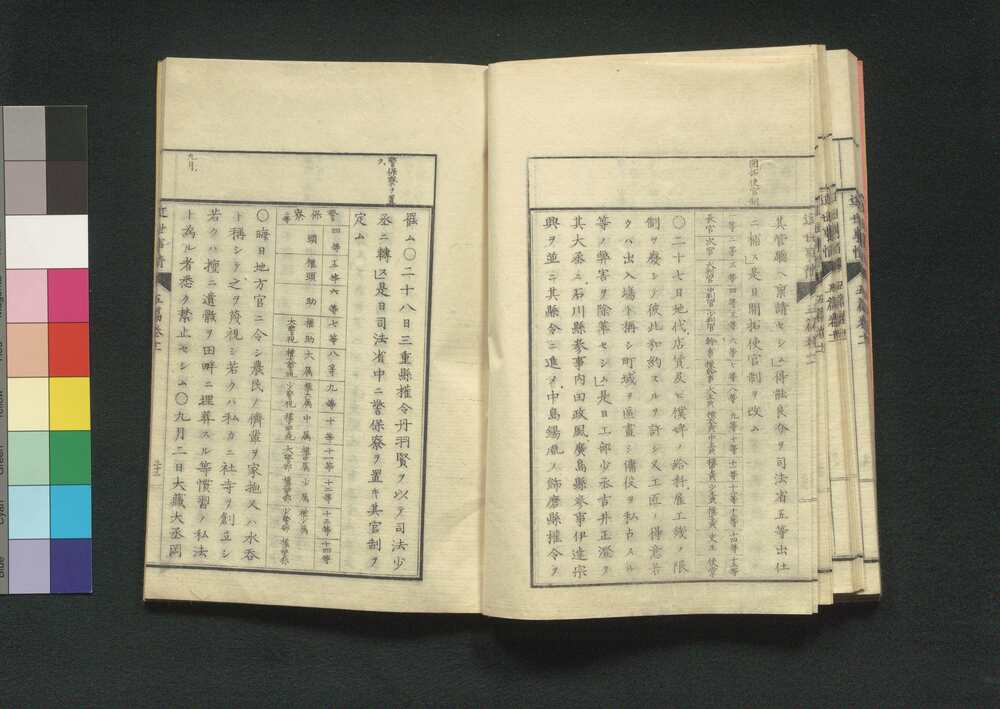 近世事情
五篇卷十一
開拓使官制
其管轄ヘ稟請セシム得能良介ヲ司法省五等出仕
ニ補ス是日開拓使官制ヲ改ム
一等二等三等四等五等六等七等八等九等十等十一等十二等十三等十四等十五等
長官次官
〇二十七日地代店賃及ヒ僕婢ノ給料雇工錢ノ限
制ヲ廢シテ彼此和約スルヲ許シ又工匠ノ得意若
クハ出入場ト稱シ町城ヲ區畫シ傭役ヲ私占スル
等ノ弊害ヲ除棄セシム是日工部少丞吉井正澄ヲ
其大丞ニ石川縣參事內田政風廣島縣參事伊達宗
興ヲ並ニ其縣令ニ進メ中島錫胤ヲ飾磨縣權令ヲ
警保寮ヲ置ク
罷ム〇二十八日三重縣權令丹羽賢ヲ以テ司法少
丞ニ轉ス是日司法省中ニ警保寮ヲ置キ其官制ヲ
定ム
警保寮
四等五等六等七等八等九等十等十一等十二等十三等十四等
頭權頭助權助大屬權大屬中屬權中屬少屬權少屬
大警視權大警視少警視權少警視大警部權大警部少警部權少警部
〇晦日地方官ニ令シ農民ノ儕輩ヲ家抱又ハ水呑
ト稱シテ之ヲ蔑視シ若クハ私カニ社寺ヲ創立シ
若クハ擅ニ遺骸ヲ田畔ニ埋葬スル等慣習ノ私法
ト為ル者悉ク禁止セシム〇九月二日大藏大丞岡
九月
近世事情
五篇卷十一